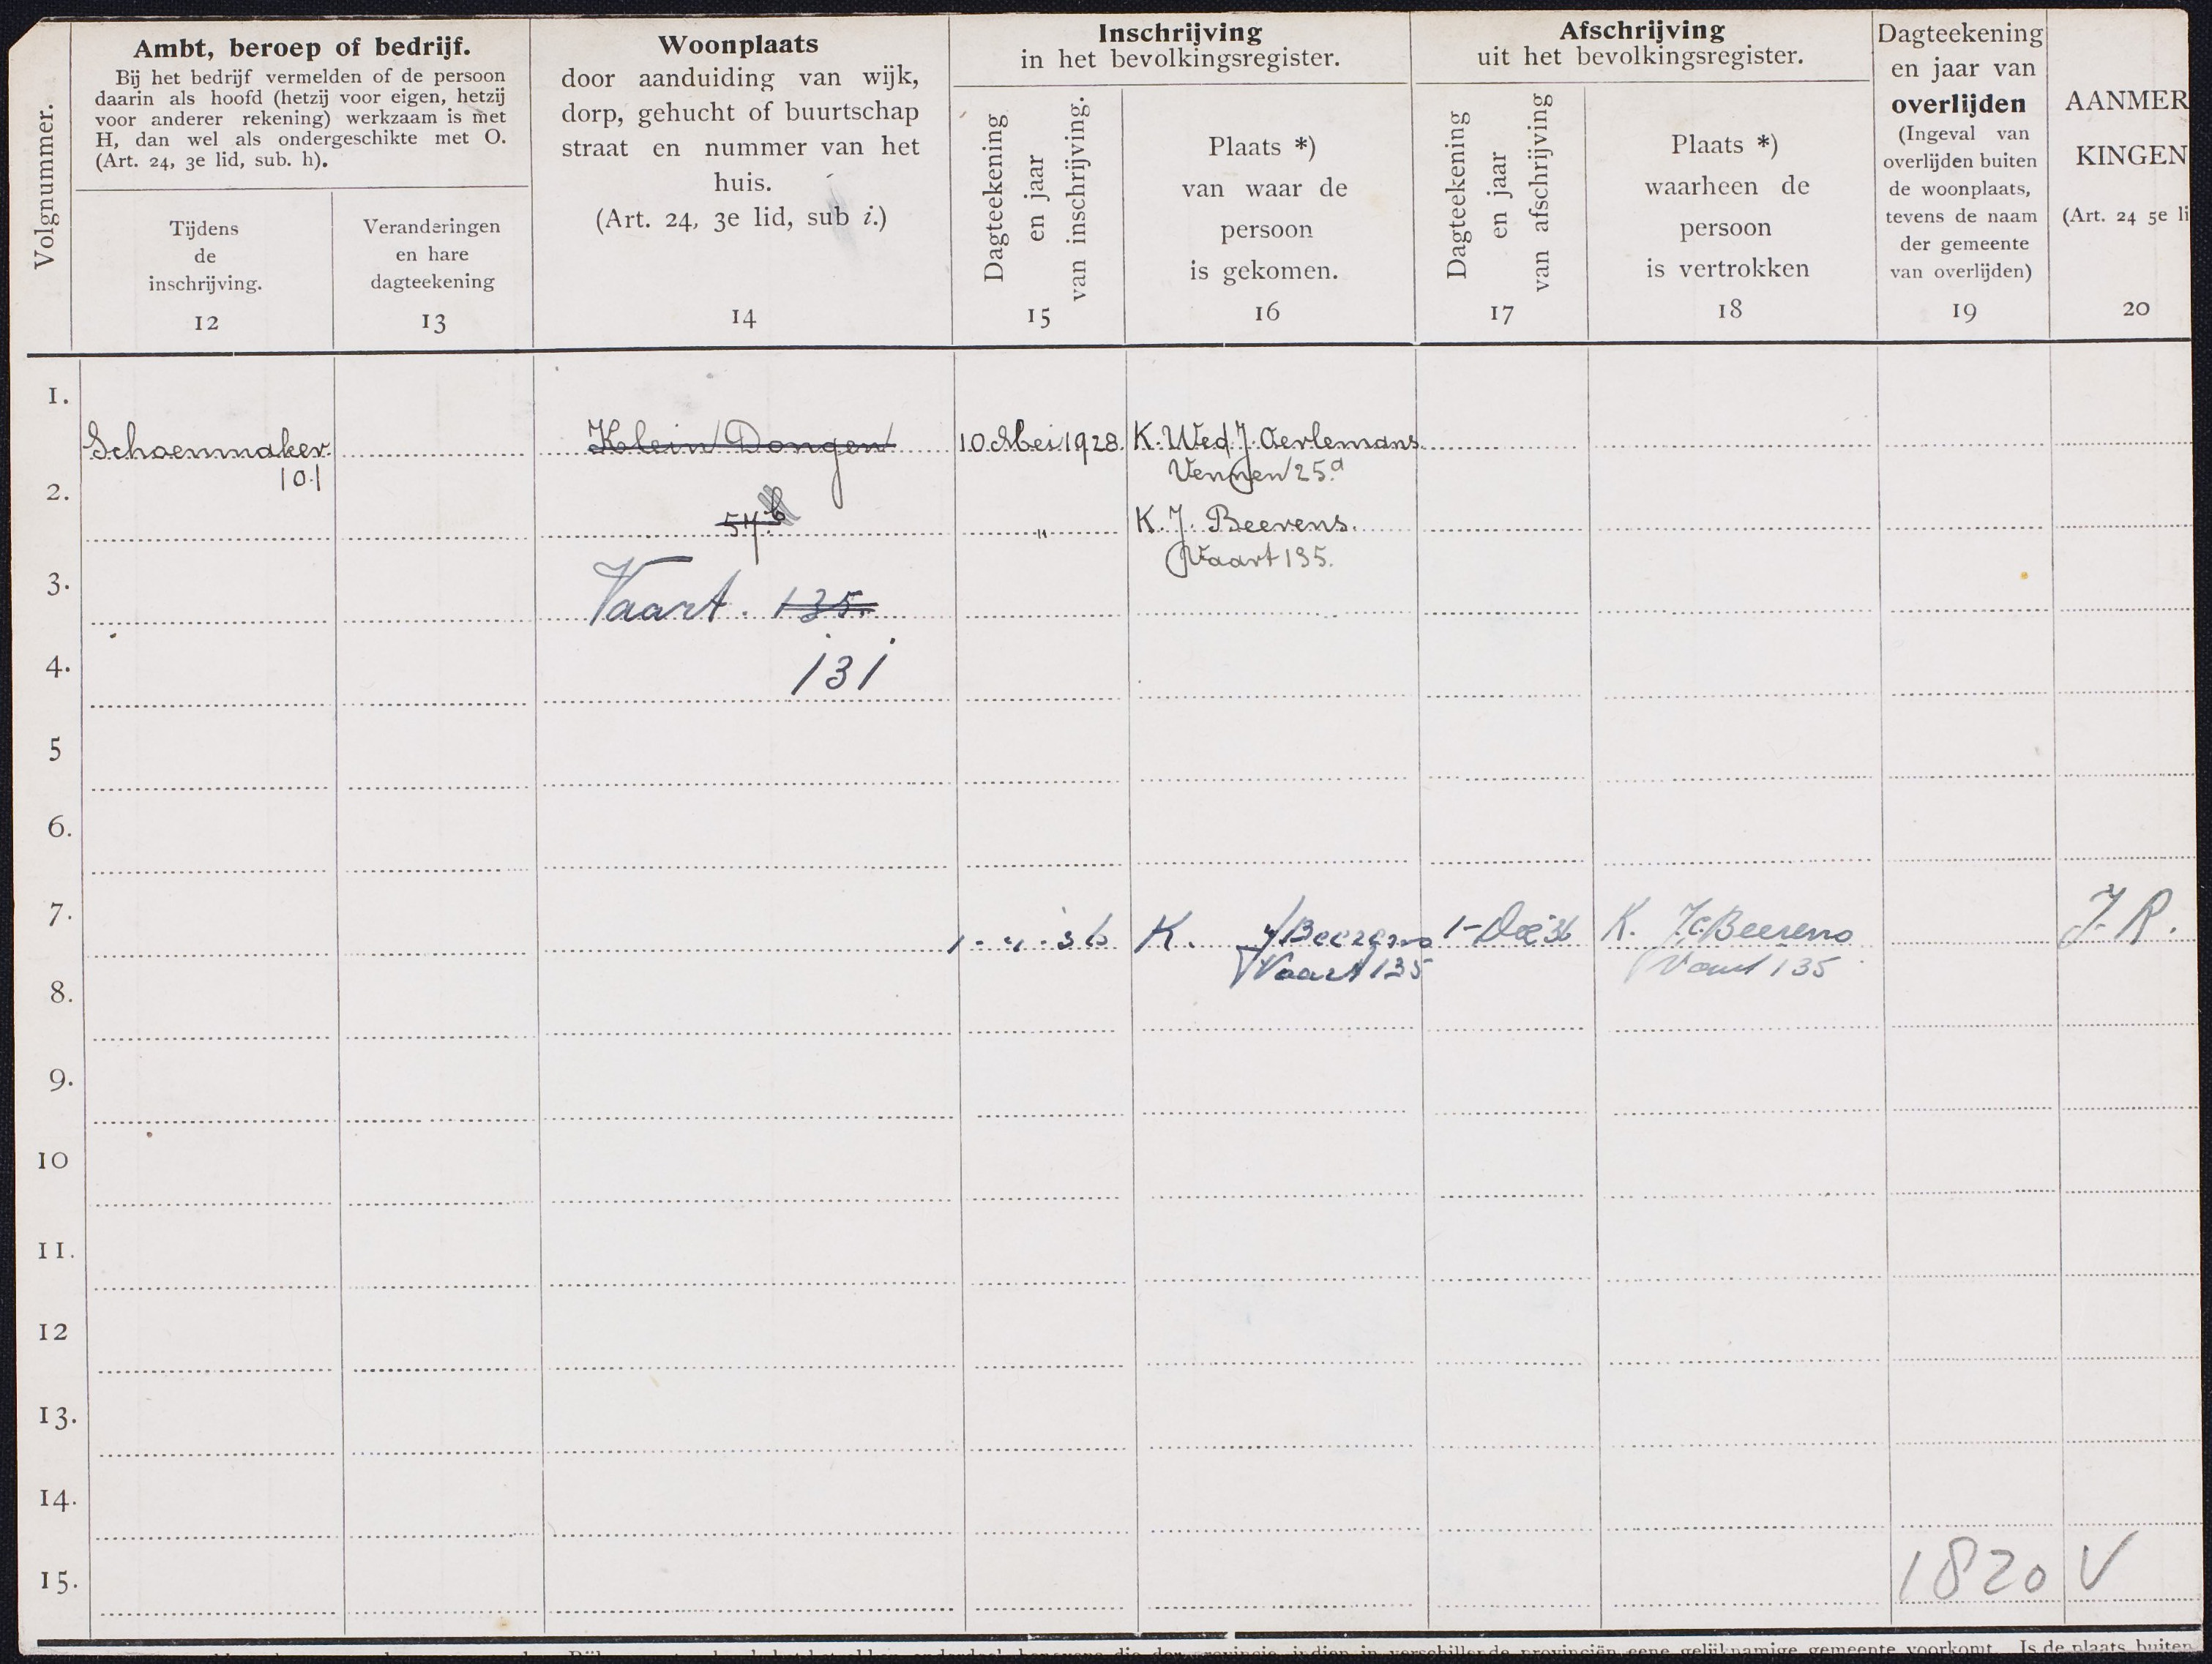 Volgnummer.
Ambt, beroep of bedrijf.
Bij het bedrijf vermelden of de persoon
daarin als hoofd (hetzij voor eigen, hetzij
voor anderer rekening) werkzaam is met
H, dan wel als ondergeschikte met O.
(Art. 24, 3e lid, sub. h).
Tijdens
de
inschrijving.
12
Veranderingen
en hare
dagteekening
13
Woonplaats
door aanduiding van wijk,
dorp, gehucht of buurtschap
straat en nummer van het
huis.
(Art. 24, 3e lid, sub i.)
14
Inschrijving
in het bevolkingsregister.
Dagteekening
en jaar
van inschrijving.
15
Plaats *)
van waar de
persoon
is gekomen.
16
Afschrijving
uit het bevolkingsregister.
Dagteekening
en jaar
van afschrijving
17
Plaats *)
waarheen de
persoon
is vertrokken
18
Dagteekening
en jaar van
overlijden
(Ingeval van
overlijden buiten
de woonplaats,
tevens de naam
der gemeente
van overlijden)
19
AANMER
KINGEN
(Art. 24 5e li
20
1.
Schoenmaker. Klein Dongen 10 Mei 1928. K. Wed. J. Oerlemans
101 Vennen 25a
2.
57b " K. J. Beerens.
Vaart 135.
3.
Vaart. 135.
4.
131
5
6.
7.
K. J Beerens 1-Dec 36 K. J.C. Beerens J.R.
Vaart 135 Vaart 135
8.
9.
10
11.
12
13.
14.
15.
1820 V
die der provincie, indien in verschillende provinciën eene gelijknamige gemeente voorkomt. Is de plaats buiten